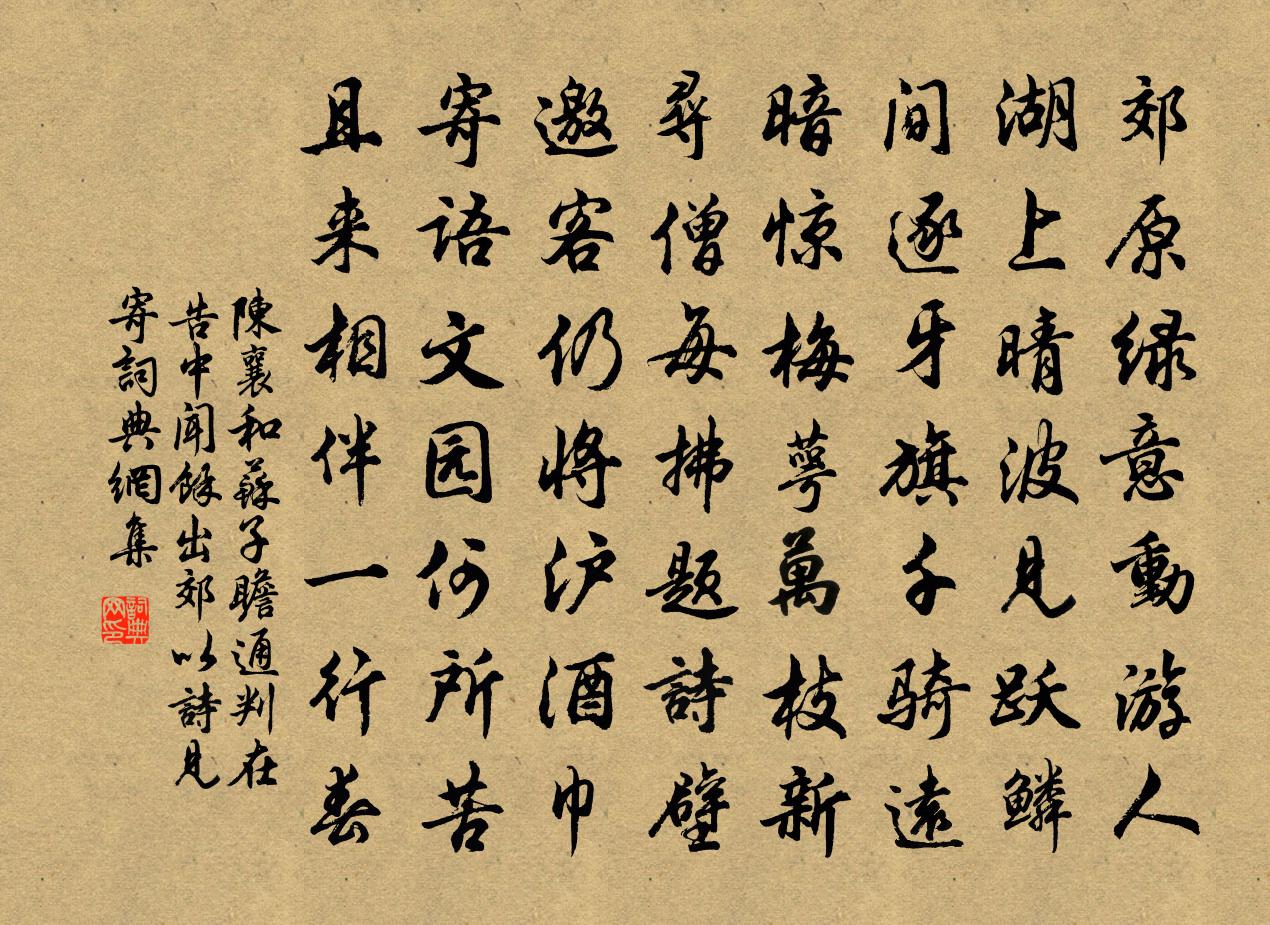 郊原绿意動游人
湖上晴波見跃鳞
间逐牙旗千骑遠
暗惊梅萼萬枝新
尋僧每拂题詩壁
邀客仍将沪酒巾
寄語文园何所苦
且来相伴一行春
陳襄和蘇子瞻通判在
告中闻餘出郊以詩見
寄詞典網集
詞典
网印